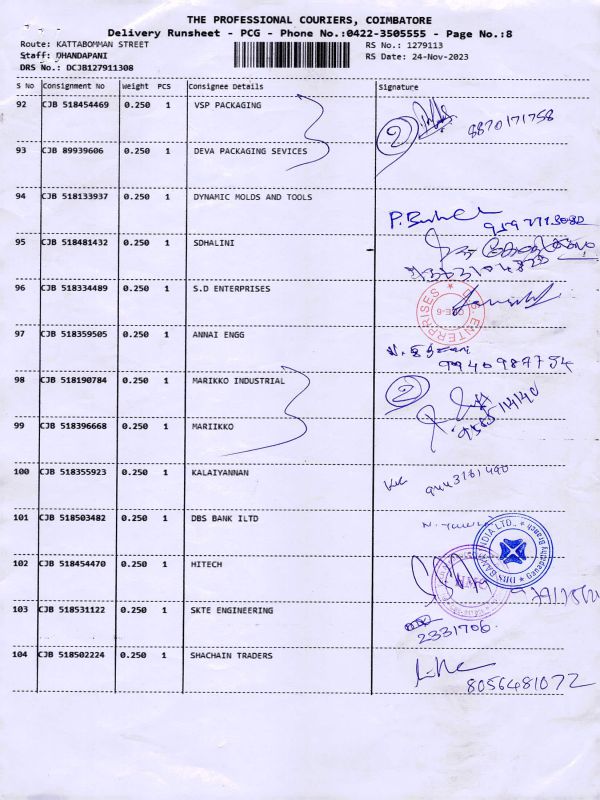 THE PROFESSIONAL COURIERS, COIMBATORE
Delivery Runsheet - PCG - Phone No.:0422-3505555 - Page No.:8
Route: KATTABOMMAN STREET RS No.: 1279113
Staff: DHANDAPANI RS Date: 24-Nov-2023
DRS No.: DCJB127911308
S No Consignment No Weight PCS Consignee Details Signature
92 CJB 518454469 0.250 1 VSP PACKAGING
2 8870171758
93 CJB 89939606 0.250 1 DEVA PACKAGING SEVICES
94 CJB 518133937 0.250 1 DYNAMIC MOLDS AND TOOLS
95 CJB 518481432 0.250 1 SDHALINI
96 CJB 518334489 0.250 1 S.D ENTERPRISES
ENTERPRISES
97 CJB 518359505 0.250 1 ANNAI ENGG
9940987754
98 CJB 518190784 0.250 1 MARIKKO INDUSTRIAL
2
99 CJB 518396668 0.250 1 MARIIKKO
100 CJB 518355923 0.250 1 KALAIYANNAN
101 CJB 518503482 0.250 1 DBS BANK ILTD
102 CJB 518454470 0.250 1 HITECH
103 CJB 518531122 0.250 1 SKTE ENGINEERING
2331706
104 CJB 518502224 0.250 1 SHACHAIN TRADERS
8056481072